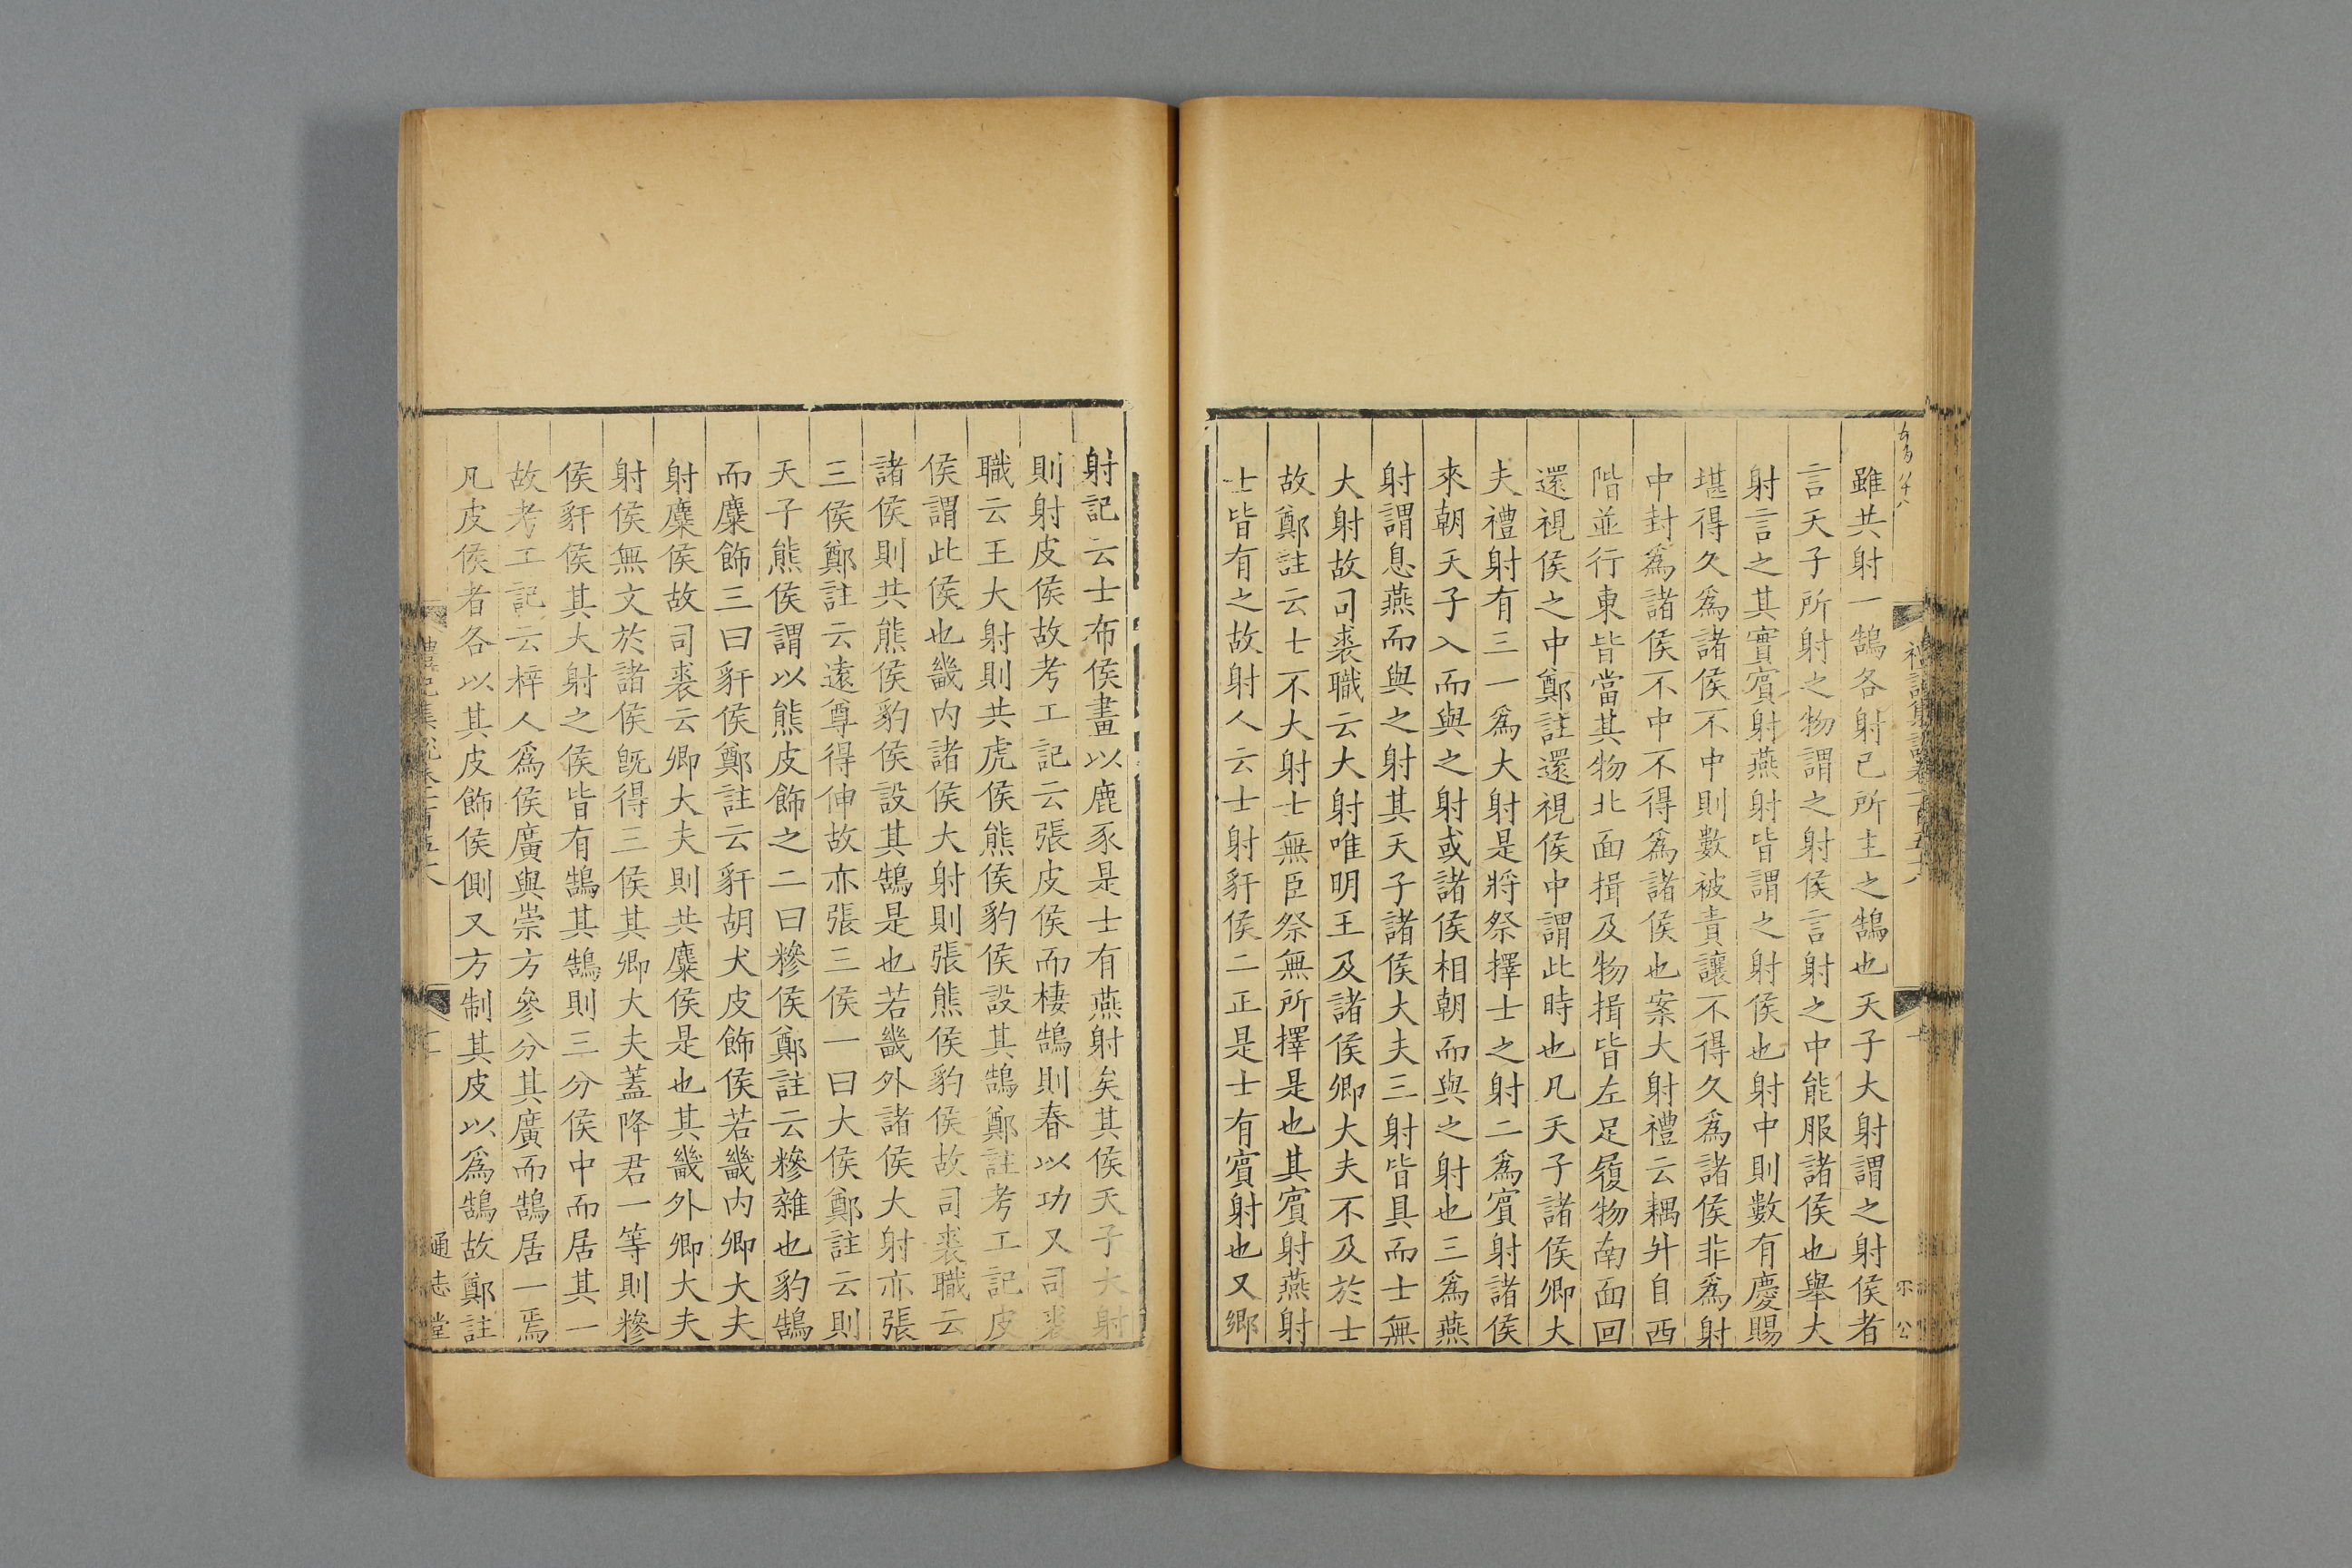 雖共射一鵠各射已所主之鵠也天子大射謂之射侯者
言天子所射之物謂之射侯言射之中能服諸侯也舉大
射言之其實賓射燕射皆謂之射侯也射中則數有慶賜
堪得久爲諸侯不中則數被責讓不得久爲諸侯非爲射
中封爲諸侯不中不得爲諸侯也案大射禮云耦升自西
階並行東皆當其物北面揖及物揖皆左足履物南面回
還視侯之中鄭註還視侯中謂此時也凡天子諸侯卿大
夫禮射有三一爲大射是將祭擇士之射二爲賓射諸侯
來朝天子入而與之射或諸侯相朝而與之射也三爲燕
射謂息燕而與之射其天子諸侯大夫三射皆具而士無
大射故司裘職云大射唯明王及諸侯卿大夫不及於士
故鄭註云士不大射士無臣祭無所擇是也其賓射燕射
士皆有之故射人云士射豻侯二正是士有賓射也又鄉
射記云士布侯畫以鹿豕是士有燕射矣其侯天子大射
則射皮侯故考工記云張皮侯而棲鵠則春以功又司裘
職云王大射則共虎侯熊侯豹侯設其鵠鄭註考工記皮
侯謂此侯也畿内諸侯大射則張熊侯豹侯故司裘職云
諸侯則共熊侯豹侯設其鵠是也若畿外諸侯大射亦張
三侯鄭註云遠尊得伸故亦張三侯一曰大侯鄭註云則
天子熊侯謂以熊皮飾之二曰糝侯鄭註云糝雜也豹鵠
而麋飾三曰豻侯鄭註云豻胡犬皮飾侯若畿内卿大夫
射麋侯故司裘云卿大夫則共麋侯是也其畿外卿大夫
射侯無文於諸侯旣得三侯其卿大夫蓋降君一等則糝
侯豻侯其大射之侯皆有鵠其鵠則三分侯中而居其一
故考工記云梓人爲侯廣與崇方參分其廣而鵠居一焉
凡皮侯者各以其皮飾侯側又方制其皮以爲鵠故鄭註
通志堂